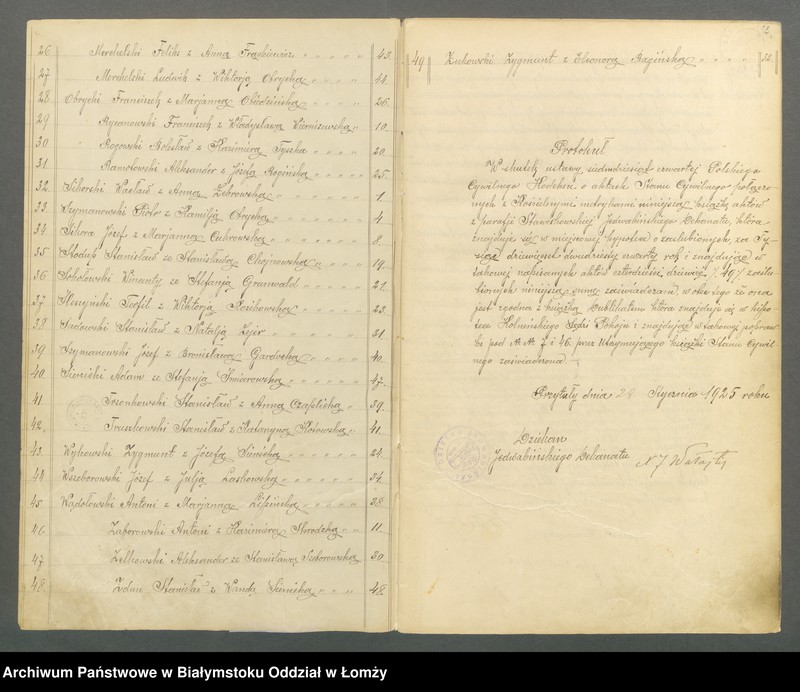 26 Mordulski Feliks z Anną Frąckiewicz 43
27 Mordulski Ludwik z Wiktorją Obrycką 44
28 Obrycki Franciszek z Marjanną Obiedzińską 26
29 Ryszanowski Franciszek z Władysławą Wierciszewską 10
30 Rogowski Bolesław z Kazimierą Tyszka 20
31 Ramotowski Aleksander z Józefą Rogińską 25
32 Sikorski Wacław z Anną Zabrowską 1
33 Szymanowski Piotr z Kamilją Obrycką 4
34 Sikora Józef z Marjanną Cubrowską 8
35 Stanisław ze Stanisławą Chojnowską 19
36 Sokołowski Wincenty ze Stefanją Grunwald 21
37 Teofil z Wiktorją 23
38 Sadowski Stanisław z Natalją Zejer 31
39 Szymanowski Józef z Bronisławą Gardocką 40
40 Adam ze Stefanją 47
41 Stanisław z Anną 39
42 Truszkowski Stanisław z Katarzyną Kotowską 41
43 Wykowski Zygmunt z Józefą 24
44 Wszeborowski Józef z Julją Laskowską 34
45 Wądołowski Antoni z Marjanną 38
46 Zaborowski Antoni z Kazimierą Skrodzką 11
47 Aleksander ze Stanisławą 30
48 Stanisław z Wandą 48
49 Żukowski Zygmunt z Eleonorą Bagińską 32
Protokuł
W skutek ustawy siedmdziesiąt czwartej Polskiego
Cywilnego Kodeksu o aktach Stanu Cywilnego połączo-
nych z Kościelnymi metrykami niniejszą książkę aktów
z parafji Stawiskowskiej Jedwabińskiego Dekanatu, która
znajduje się w miejscowej o zaślubionych, za Ty-
siąc dziewięćset dwudziesty czwarty rok i znajdujące w
takowej napisanych aktów czterdzieści dziewięć /:49:/ zaślu-
bionych niniejszą sumę zaświadczam, wobec tego że ona
jest zgodna z książką Dublikatem która znajduje się w hipo-
tece Kolneńskiego Sędzi Pokoju i znajdujące w takowej popraw-
ki pod 7 i 46 przez Utrzymującego książki Stanu Cywil-
nego zaświadczone
Przytuły dnia 28 Stycznia 1925 roku
Dziekan
Jedwabińskiego Dekanatu
Archiwum Państwowe w Białymstoku Oddział w Łomży